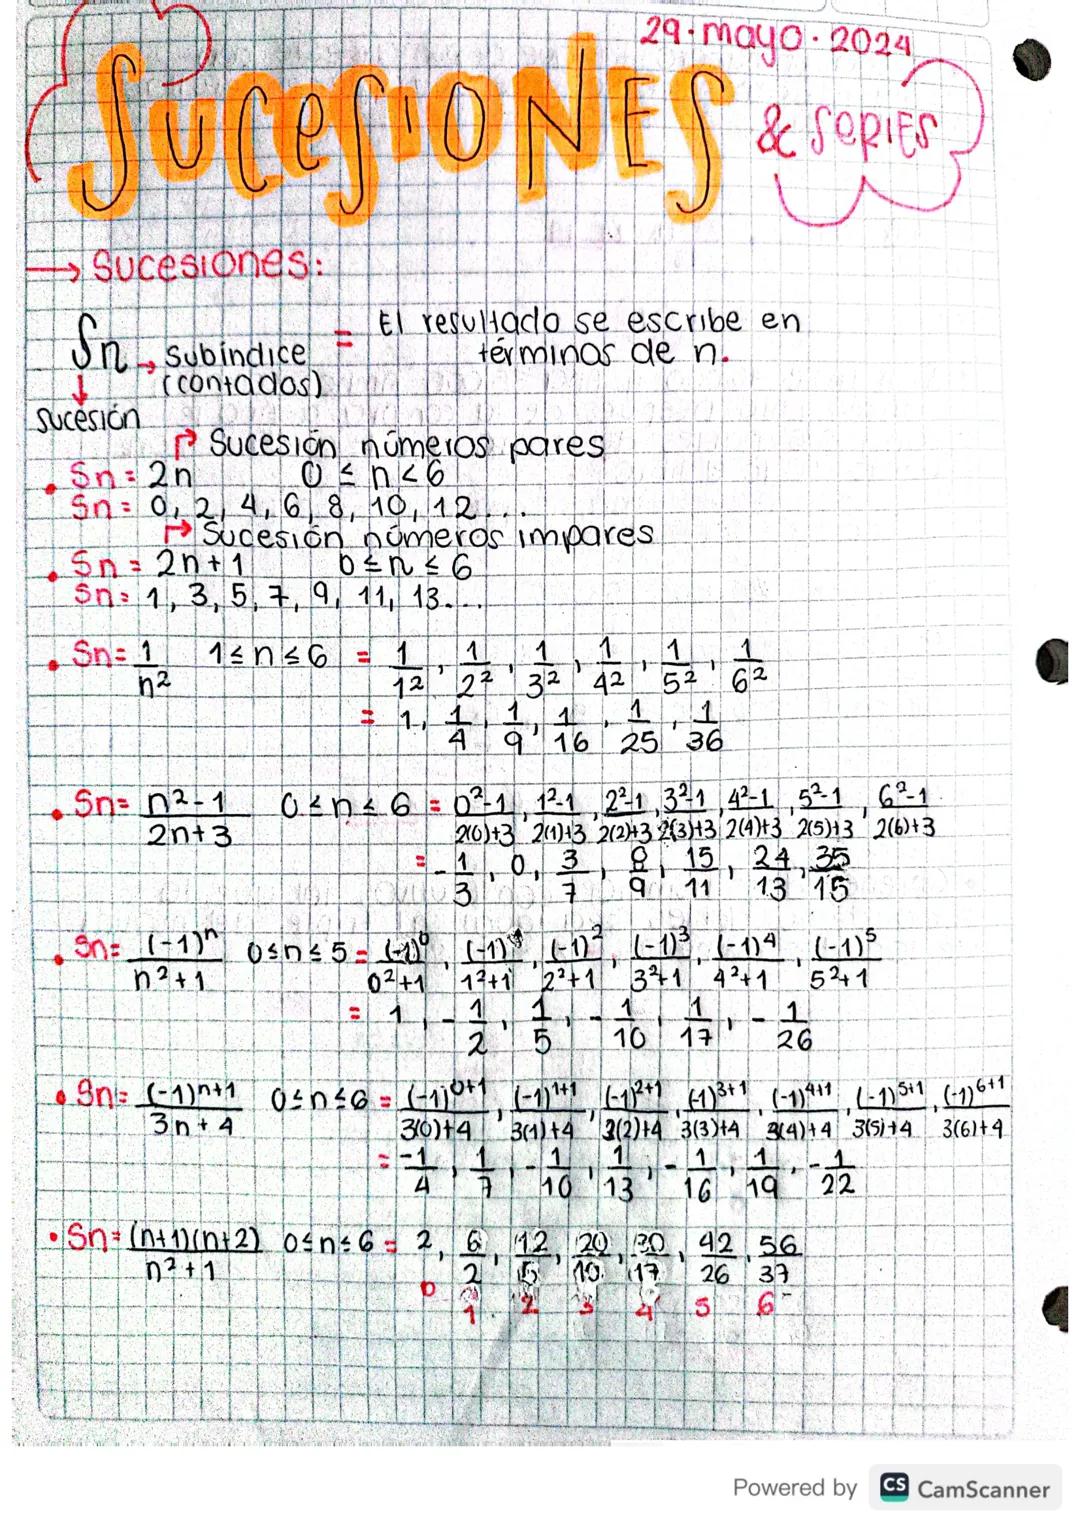 29·mayo·2024
SUCESIONES & SERIES
→ Sucesiones:
Sn → Subíndice (contados) = El resultado se escribe en términos de n.
↓
sucesión
↱ Sucesión números pares
• Sn = 2n 0 ≤ n < 6
Sn = 0, 2, 4, 6, 8, 10, 12...
↱ Sucesión números impares
• Sn = 2n+1 0 ≤ n ≤ 6
Sn = 1, 3, 5, 7, 9, 11, 13...
• Sn = 1/n² 1 ≤ n ≤ 6 = 1/1², 1/2², 1/3², 1/4², 1/5², 1/6²
= 1, 1/4, 1/9, 1/16, 1/25, 1/36
• Sn = (n²-1)/(2n+3) 0 ≤ n ≤ 6 = (0²-1)/(2(0)+3), (1²-1)/(2(1)+3), (2²-1)/(2(2)+3), (3²-1)/(2(3)+3), (4²-1)/(2(4)+3), (5²-1)/(2(5)+3), (6²-1)/(2(6)+3)
= -1/3, 0, 3/7, 8/9, 15/11, 24/13, 35/15
• Sn = (-1)ⁿ/(n²+1) 0 ≤ n ≤ 5 = (-1)⁰/(0²+1), (-1)¹/(1²+1), (-1)²/(2²+1), (-1)³/(3²+1), (-1)⁴/(4²+1), (-1)⁵/(5²+1)
= 1, -1/2, 1/5, -1/10, 1/17, -1/26
• Sn = (-1)ⁿ⁺¹/(3n+4) 0 ≤ n ≤ 6 = (-1)⁰⁺¹/(3(0)+4), (-1)¹⁺¹/(3(1)+4), (-1)²⁺¹/(3(2)+4), (-1)³⁺¹/(3(3)+4), (-1)⁴⁺¹/(3(4)+4), (-1)⁵⁺¹/(3(5)+4), (-1)⁶⁺¹/(3(6)+4)
= -1/4, 1/7, -1/10, 1/13, -1/16, 1/19, -1/22
• Sn = (n+1)(n+2)/(n²+1) 0 ≤ n ≤ 6 = 2, 6/2, 12/5, 20/10, 30/17, 42/26, 56/37
0 1 2 3 4 5 6
Powered by CS CamScanner